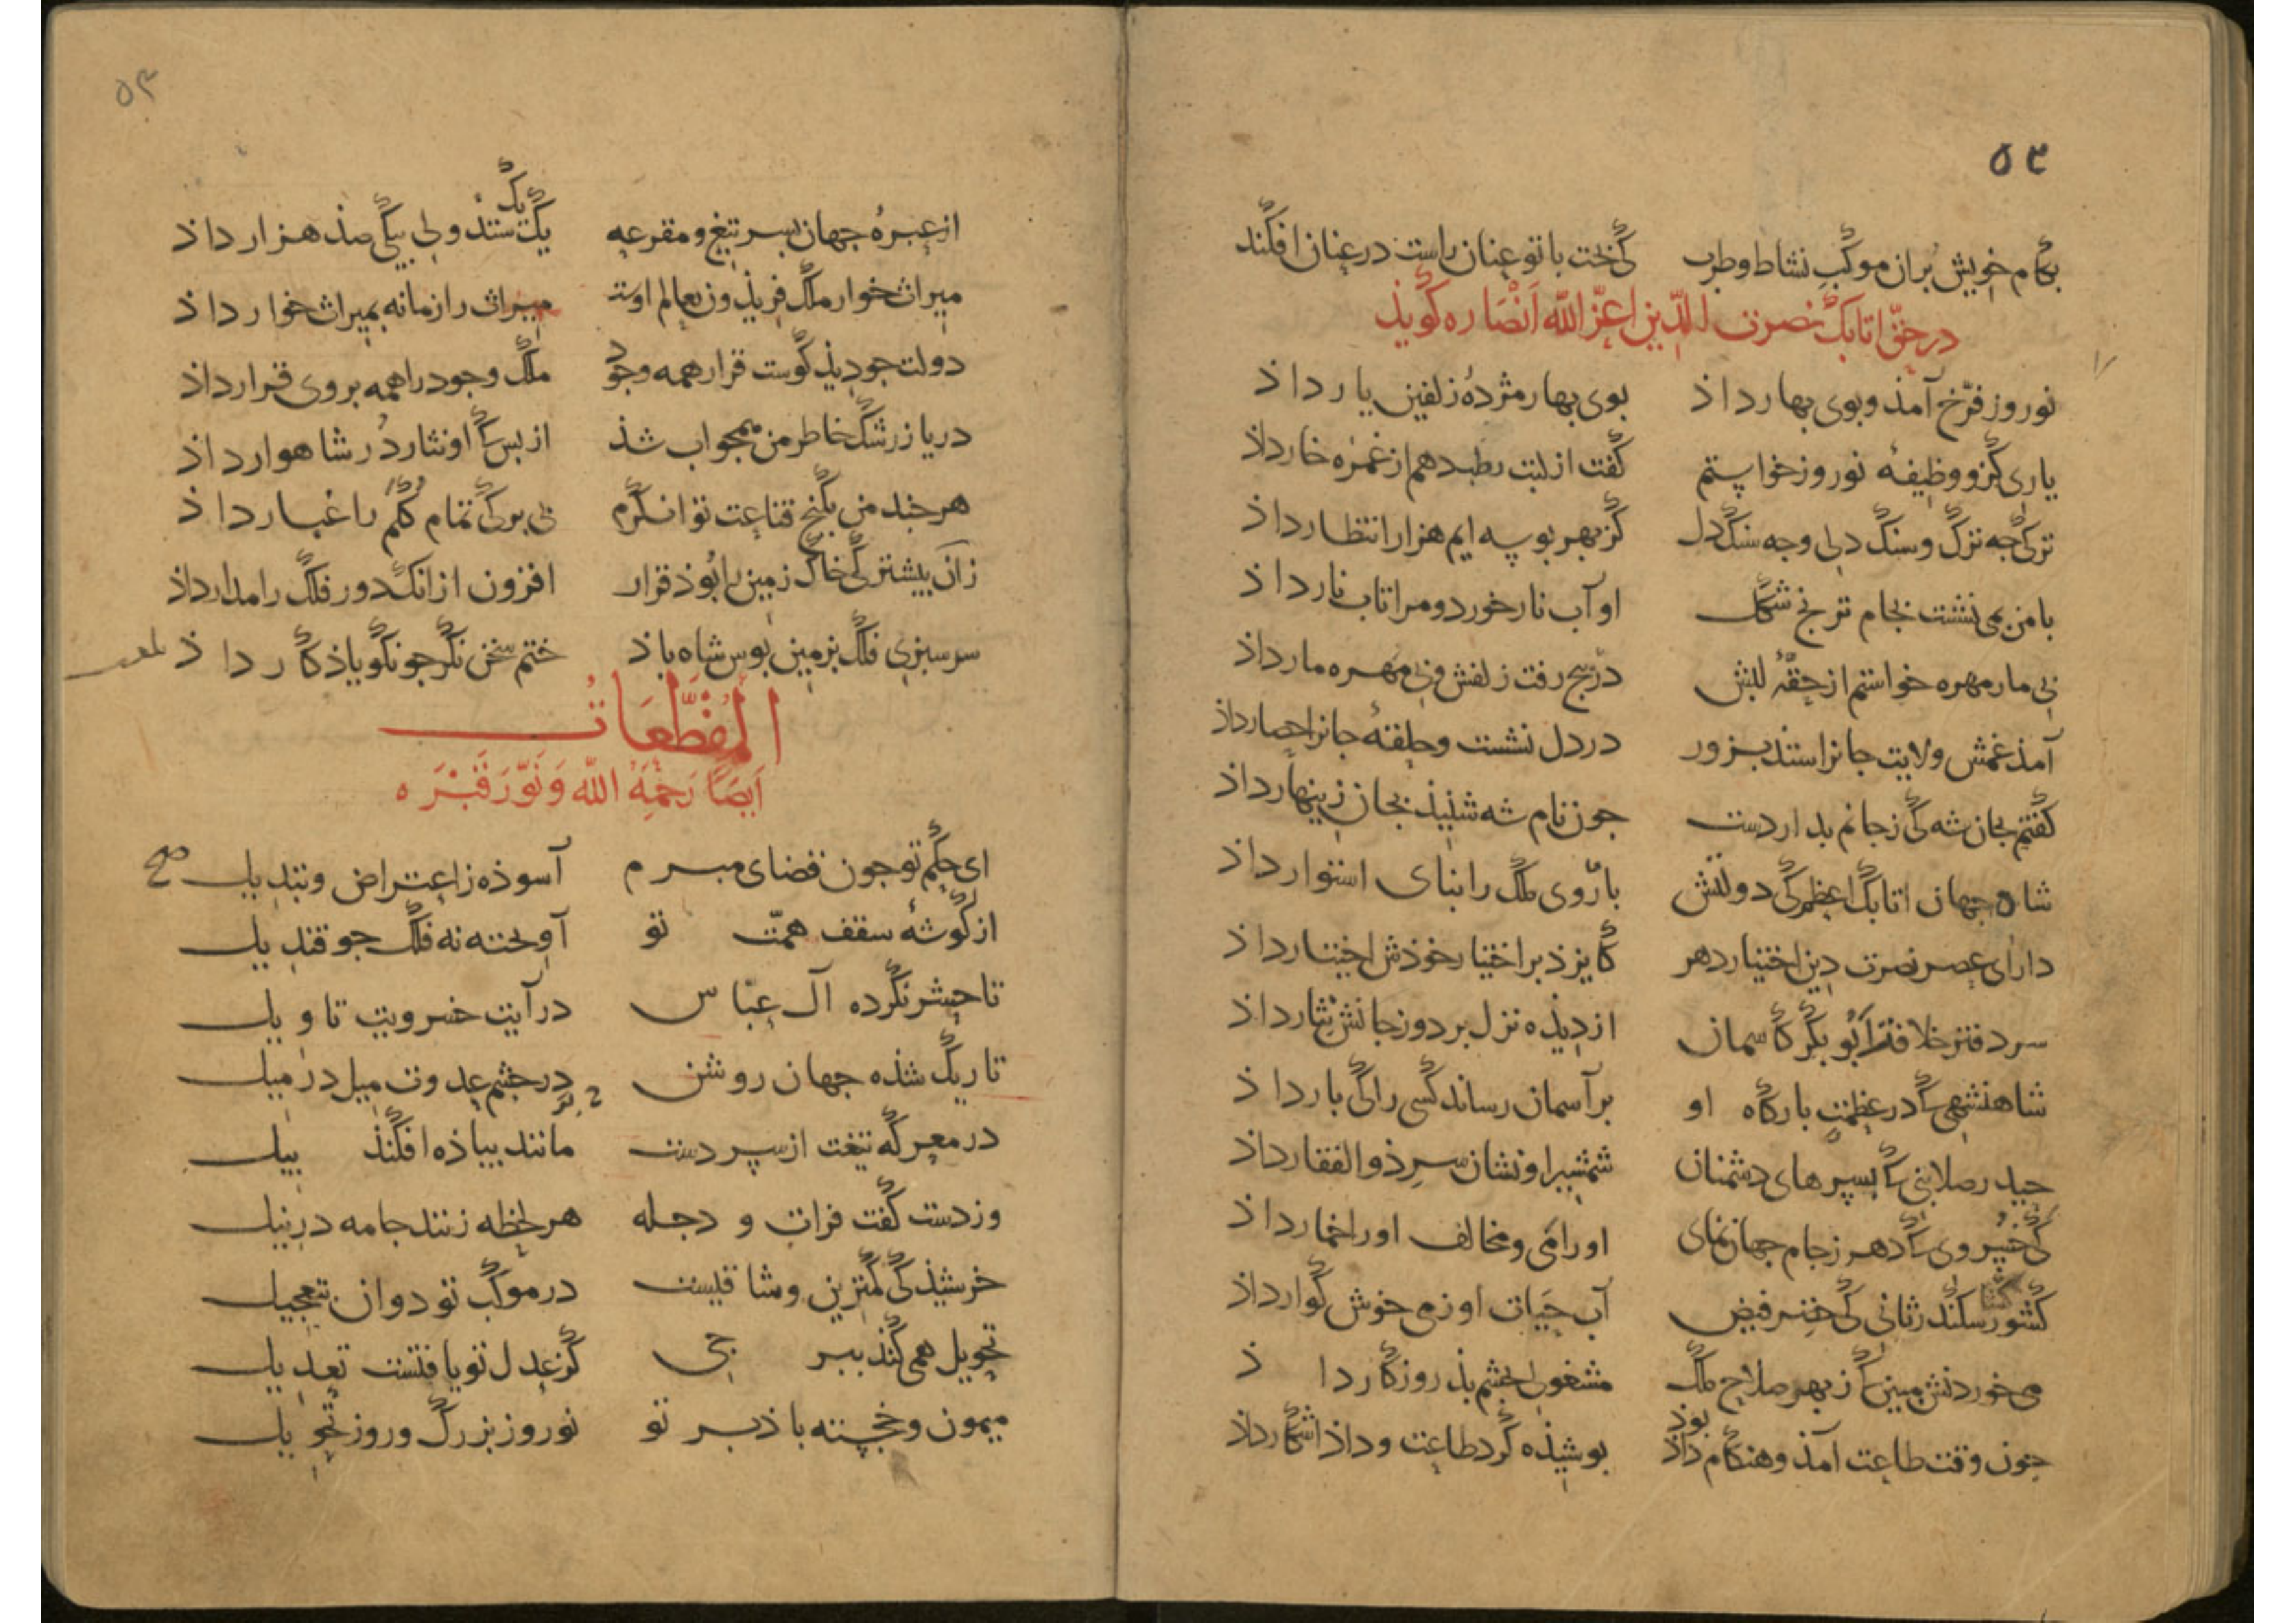 ۵۲
بکام خویش بران موکب نشاط و طرب کی بخت با تو عنان راست در عنان افکند
در حق اتابک نصرت الدین اعز الله انصاره کویذ
نوروز فرّخ آمذ و بوی بهار داذ بوی بهار مژدهٔ زلفین یار داذ
یاری کزو وظیفهٔ نوروز خواستم کفت از لبت رطب دهم از غمزه خار داذ
ترکی جه ترک و سنک دلی وجه سنک دل کز بهر بوسه ایم هزار انتظار داذ
با من می نشست بجام ترنج شکل او آب نار خورد و مرا تاب نار داذ
بی مار مهره خواستم از حقّهٔ لبش در بیج رفت زلفش و بی مهره مار داذ
آمذ غمش ولایت جانرا ستذ بزور در دل نشست و حلقهٔ جانرا حصار داذ
کفتم بجان شه کی ز جانم بدار دست جون نام شه شنیذ بجان زینهار داذ
شاه جهان اتابک اعظم کی دولتش باروی ملک را بنای استوار داذ
دارای عصر نصرت دین اختیار دهر کایزذ بر اختیار خوذش اختیار داذ
سردفتر خلافت ابوبکر کاسمان از دیذه نزل برد و ز جانش نثار داذ
شاهنشهی کا در عظمت بارکاه او بر آسمان رساند کسی را کی بار داذ
حیدر صلابتی کا بسپرهای دشمنان شمشیر او نشان سر ذوالفقار داذ
کی خسروی کا دهر ز جام جهان نمای او را می و مخالف او را خمار داذ
کشور سکندر ثانی کی خضر فیض آب حیات او ز می خوش کوار داذ
می خوردنش مبین کا ز بهر صلاح ملک مشغولی بخشم بذ روزکار داذ
جون وقت طاعت آمذ و هنکام داذ بوذ بوشیذه کرد طاعت و داذ آشکار داذ
۵۳
از عبرهٔ جهان بسر تیغ و مقرعه یک یک ستذ ولی بیکی صذ هزار داذ
میراث خوار ملک فریذون بعالم اوست میراث را زمانه بمیراث خوار داذ
دولت جو دیذ کوست قرار همه وجود ملک وجود را همه بر وی قرار داذ
دریا ز رشک خاطر من همجو آب شذ از بس کا او نثار دُر شاهوار داذ
هر جند من بکنج قناعت توانکرم بی برکی تمام کلم را غبار داذ
زان بیشتر کی خاک زمین را بوذ قرار افزون از انک دور فلک را مدار داذ
سرسبزی فلک بزمین بوس شاه باذ ختم سخن نکر جو نکو یاذکار داذ
المقطعات
ایضا رحمه الله و نوّر قبره
ای حکم تو جون قضای مبرم آسوذه ز اعتراض و تبدیل صح
از کوشهٔ سقف همّت تو آویخته نه فلک جو قندیل
تا حشر نکرده آل عبّاس در آیت خسرویت تاویل
تاریک شذه جهان روشن در جشم عدوت میل در میل
در معرکه تیغت از سپر دست مانند بیاذه افکنذ بیل
وز دست کفت فرات و دجله هر لحظه زنند جامه در نیل
خرشیذ کی کمترین وشاقیست در موکب تو دوان بتعجیل
تحویل همی کند ببرجی کز عدل تو یافتست تعدیل
میمون و خجسته باذ بر تو نوروز بزرک و روز تحویل